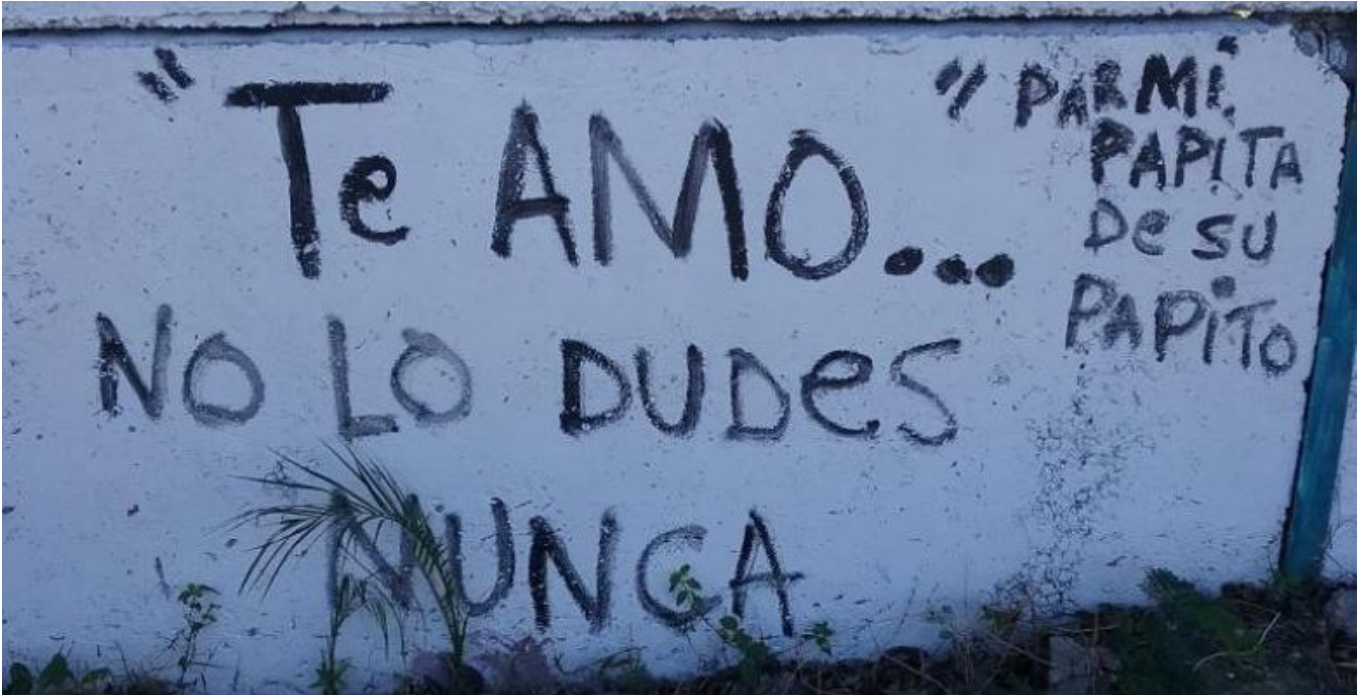 "Te AMO..."
NO LO DUDeS
NUNCA
PARMi
PAPiTA
De SU
PAPiTO